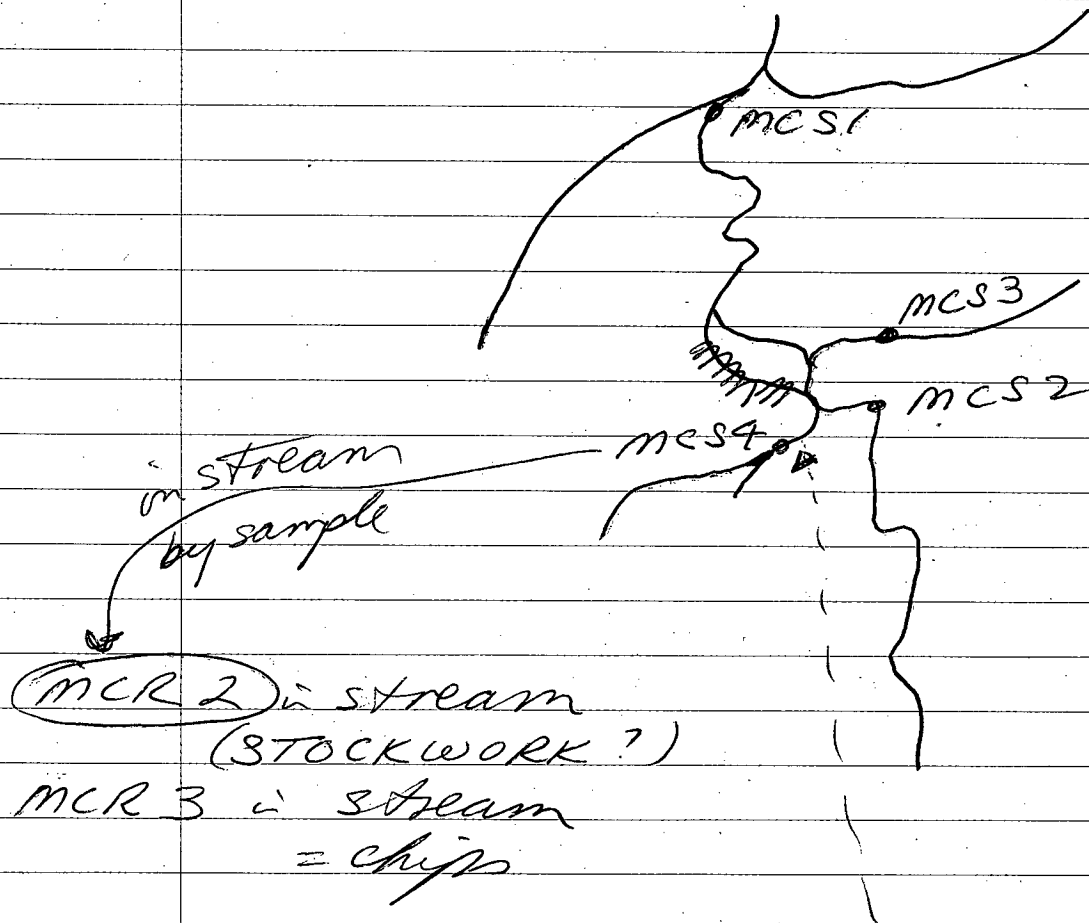 MCS1
MCS3
MCS2
MCS4
in stream
by sample
MCR 2 in stream
(STOCKWORK?)
MCR 3 in stream
= chips